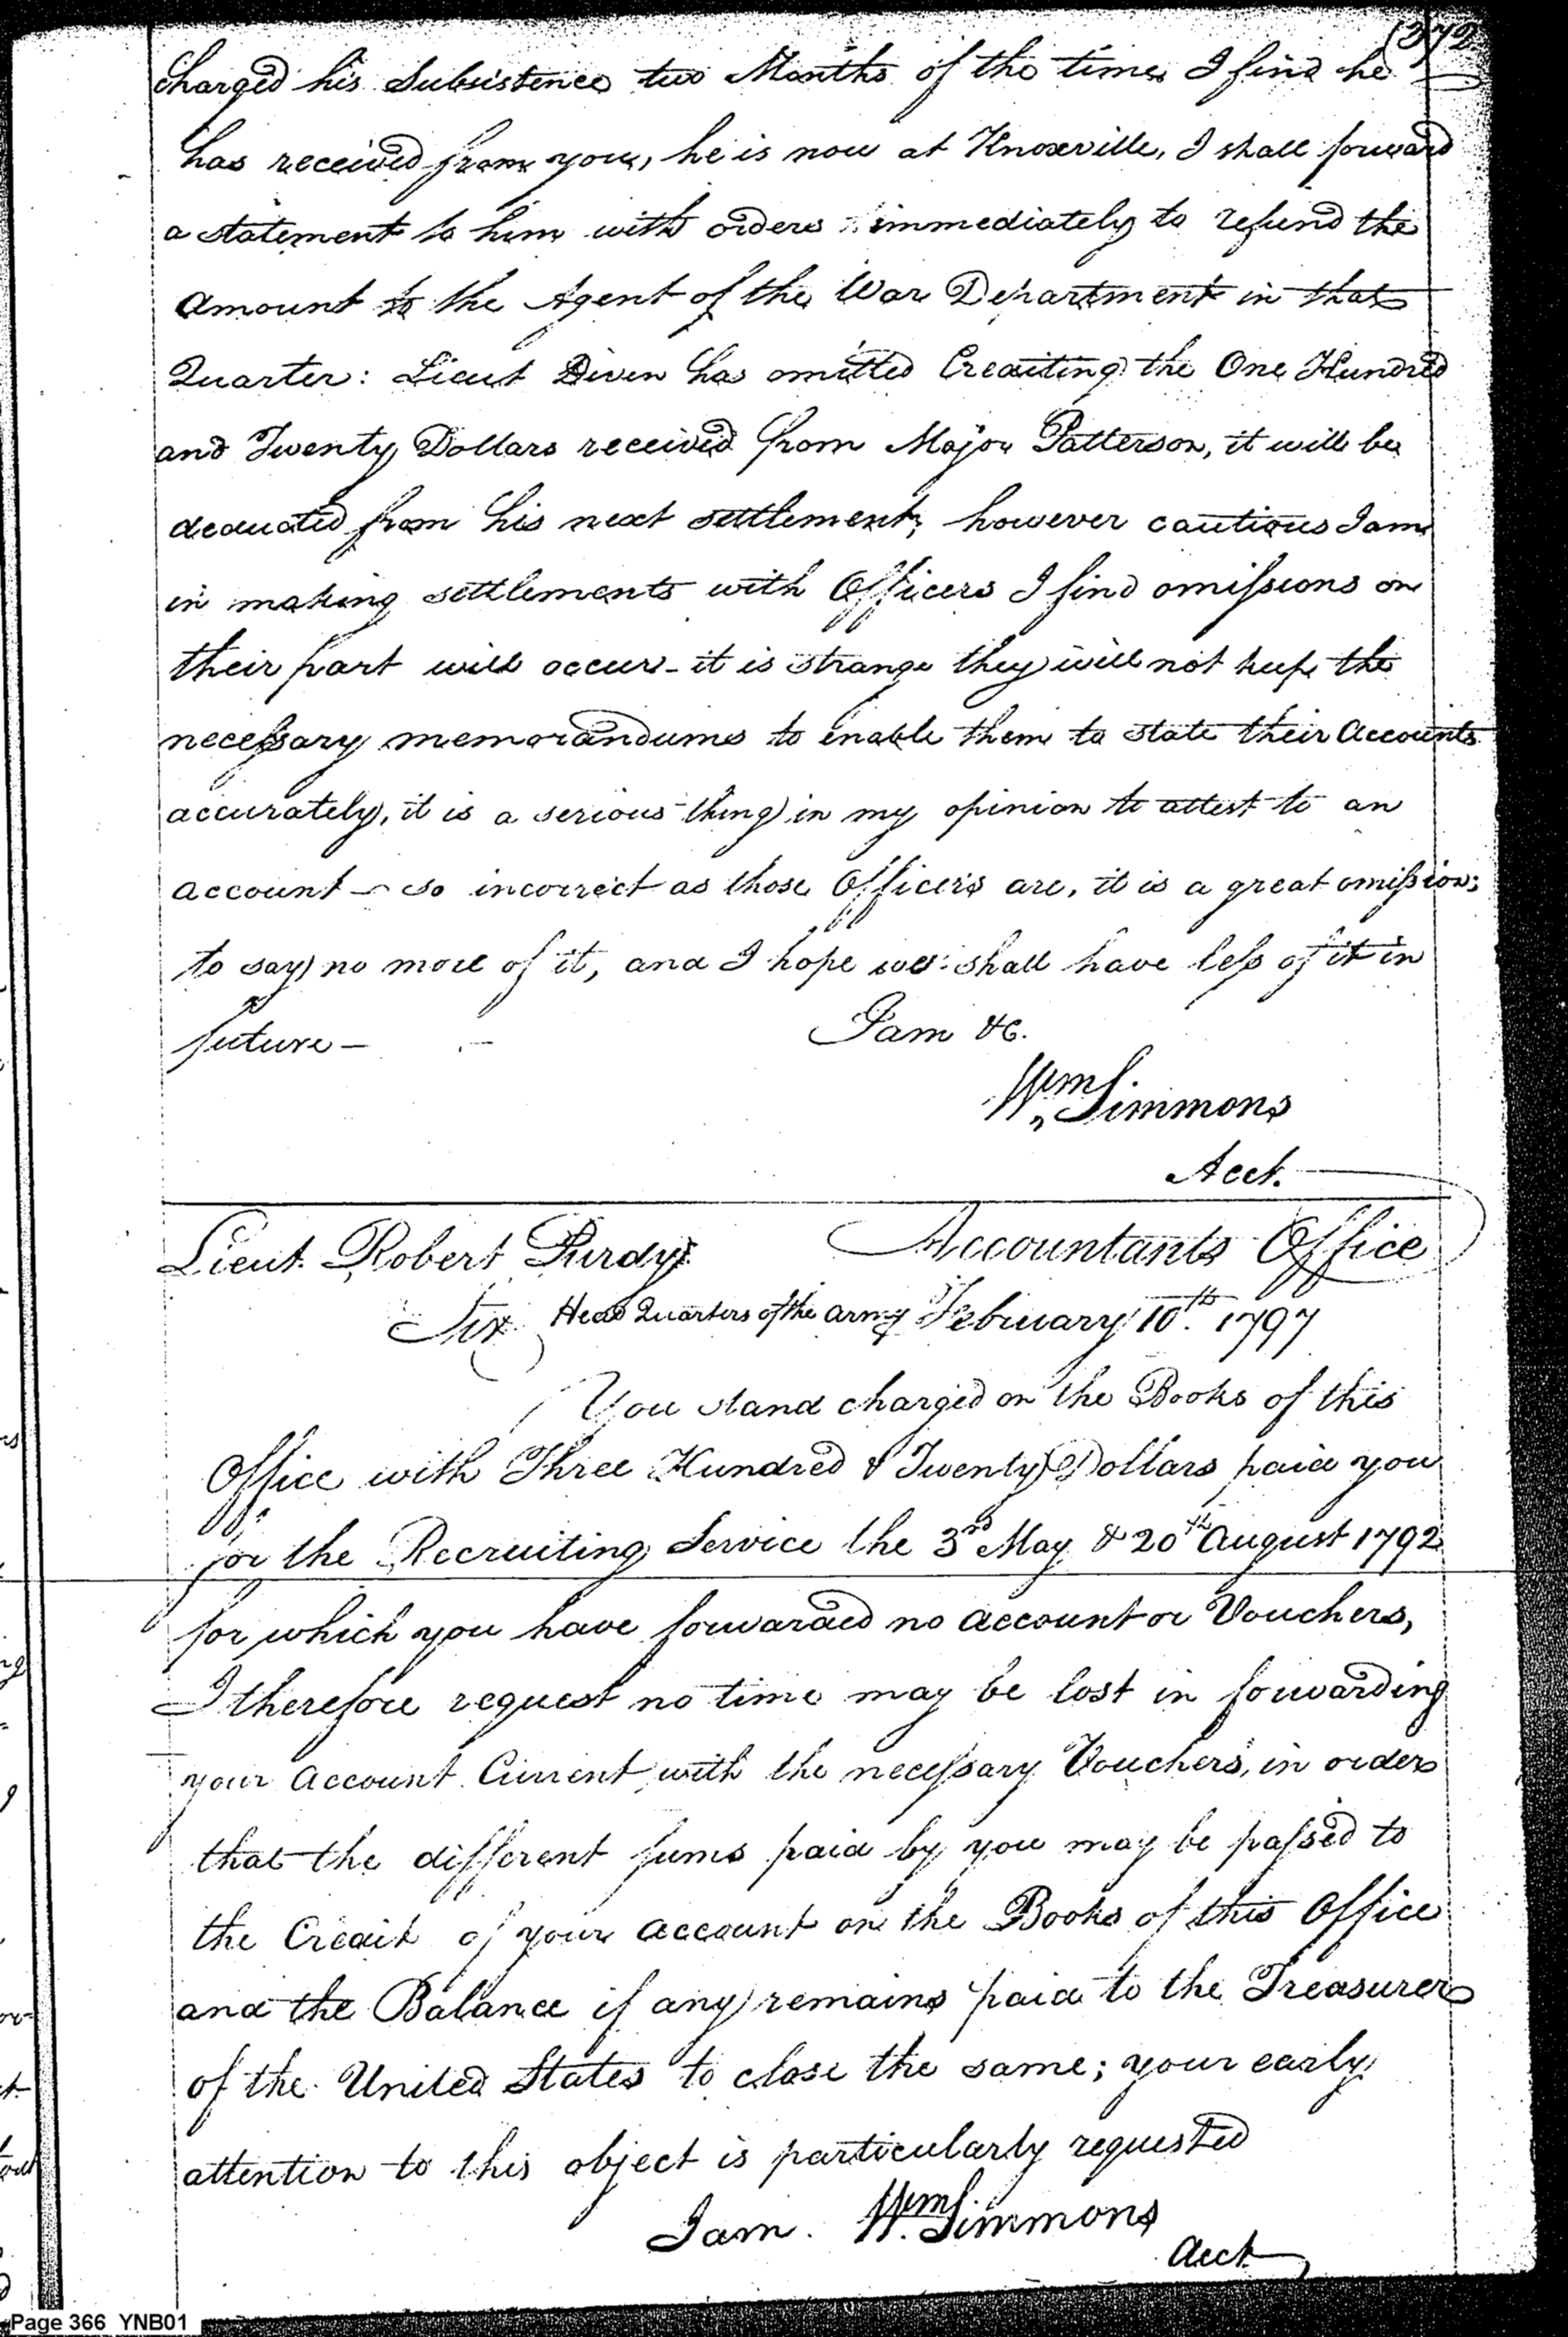 (372
charged his Subsistence two Months of the time, I find he
has received from you, he is now at Knoxville, I shall forward
a statement to him with orders immediately to refund the
amount to the Agent of the War Department in that
Quarter: Lieut Diven has omitted Crediting the One Hundred
and Twenty Dollars received from Major Patterson, it will be
deducted from his next settlement; however cautious I am
in making settlements with Officers I find omissions on
their part will occur - it is strange they will not keep the
necessary memorandums to enable them to state their Accounts
accurately, it is a serious thing in my opinion to attest to an
account - so incorrect as those Officers are, it is a great omission;
to say no more of it, and I hope we shall have less of it in
future - I am &c.
Wm Simmons
Acct.
Lieut. Robert Purdy Accountants Office
Sir Head Quarters of the army February 10th. 1797
You stand charged on the Books of this
Office with Three Hundred & Twenty Dollars paid you
for the Recruiting Service the 3rd May & 20th August 1792
for which you have forwarded no account or Vouchers,
I therefore request no time may be lost in forwarding
your Account Current with the necessary Vouchers, in order
that the different sums paid by you may be passed to
the Credit of your account on the Books of this Office
and the Balance if any remains paid to the Treasurer
of the United States to close the same; your early
attention to this object is particularly requested
I am. Wm. Simmons
Acct
Page 366 YNB01